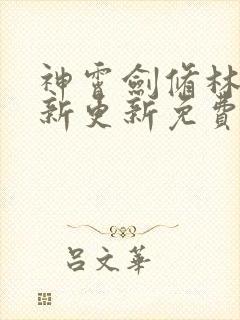 神霄劍脩林
新更新免費
呂文華